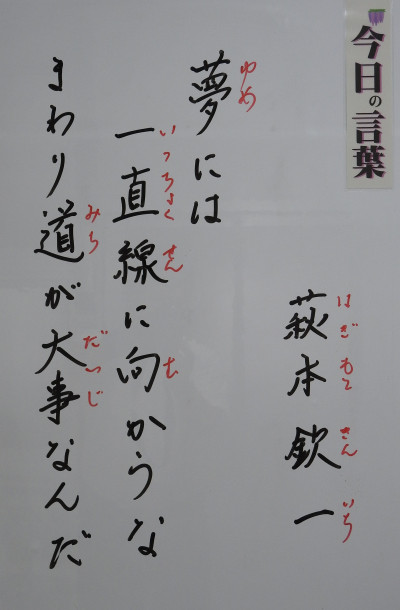 今日の言葉
萩本欽一
はぎもときんいち
夢には
ゆめ
一直線に向かうな
いっちょくせん む
まわり道が大事なんだ
みち だいじ